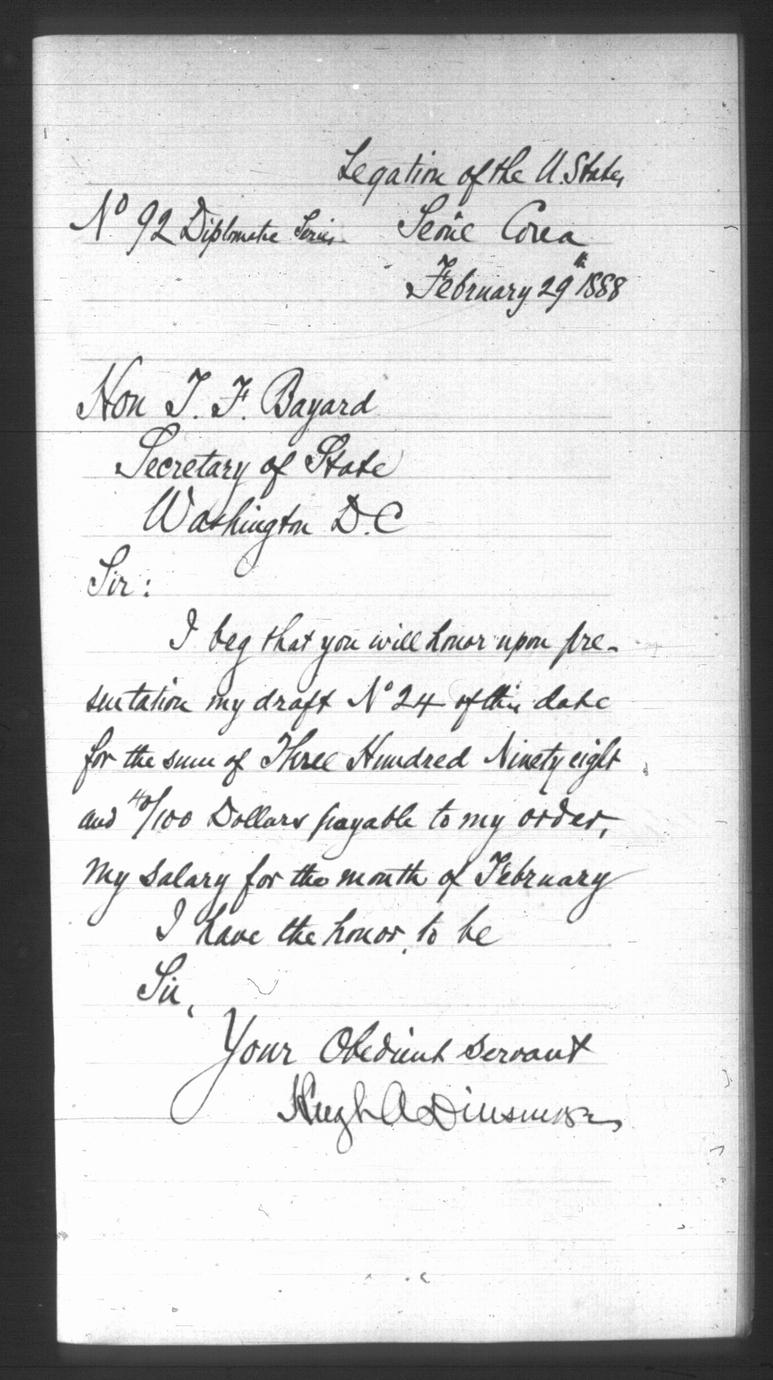 Legation of the U. States
No 92 Diplomatic Series Seoul Corea
February 29th 1888
Hon T. F. Bayard
Secretary of State
Washington D.C
Sir:
I beg that you will honor upon pre-
sentation my draft No 24 of this date
for the sum of Three Hundred Ninety eight
and 40/100 Dollars payable to my order,
my salary for the month of February
I have the honor, to be
Sir,
Your Obedient servant
Hugh A Dinsmore